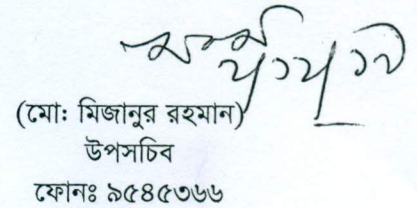 (মো: মিজানুর রহমান)
উপসচিব
ফোনঃ ৯৫৪৫৩৬৬